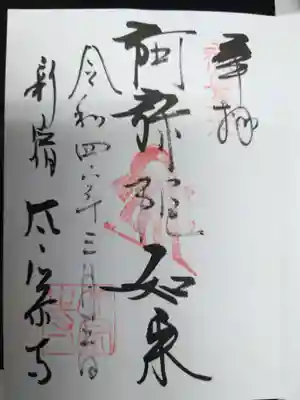 奉拝
阿弥陀如来
令和四年三月日
新宿 寺